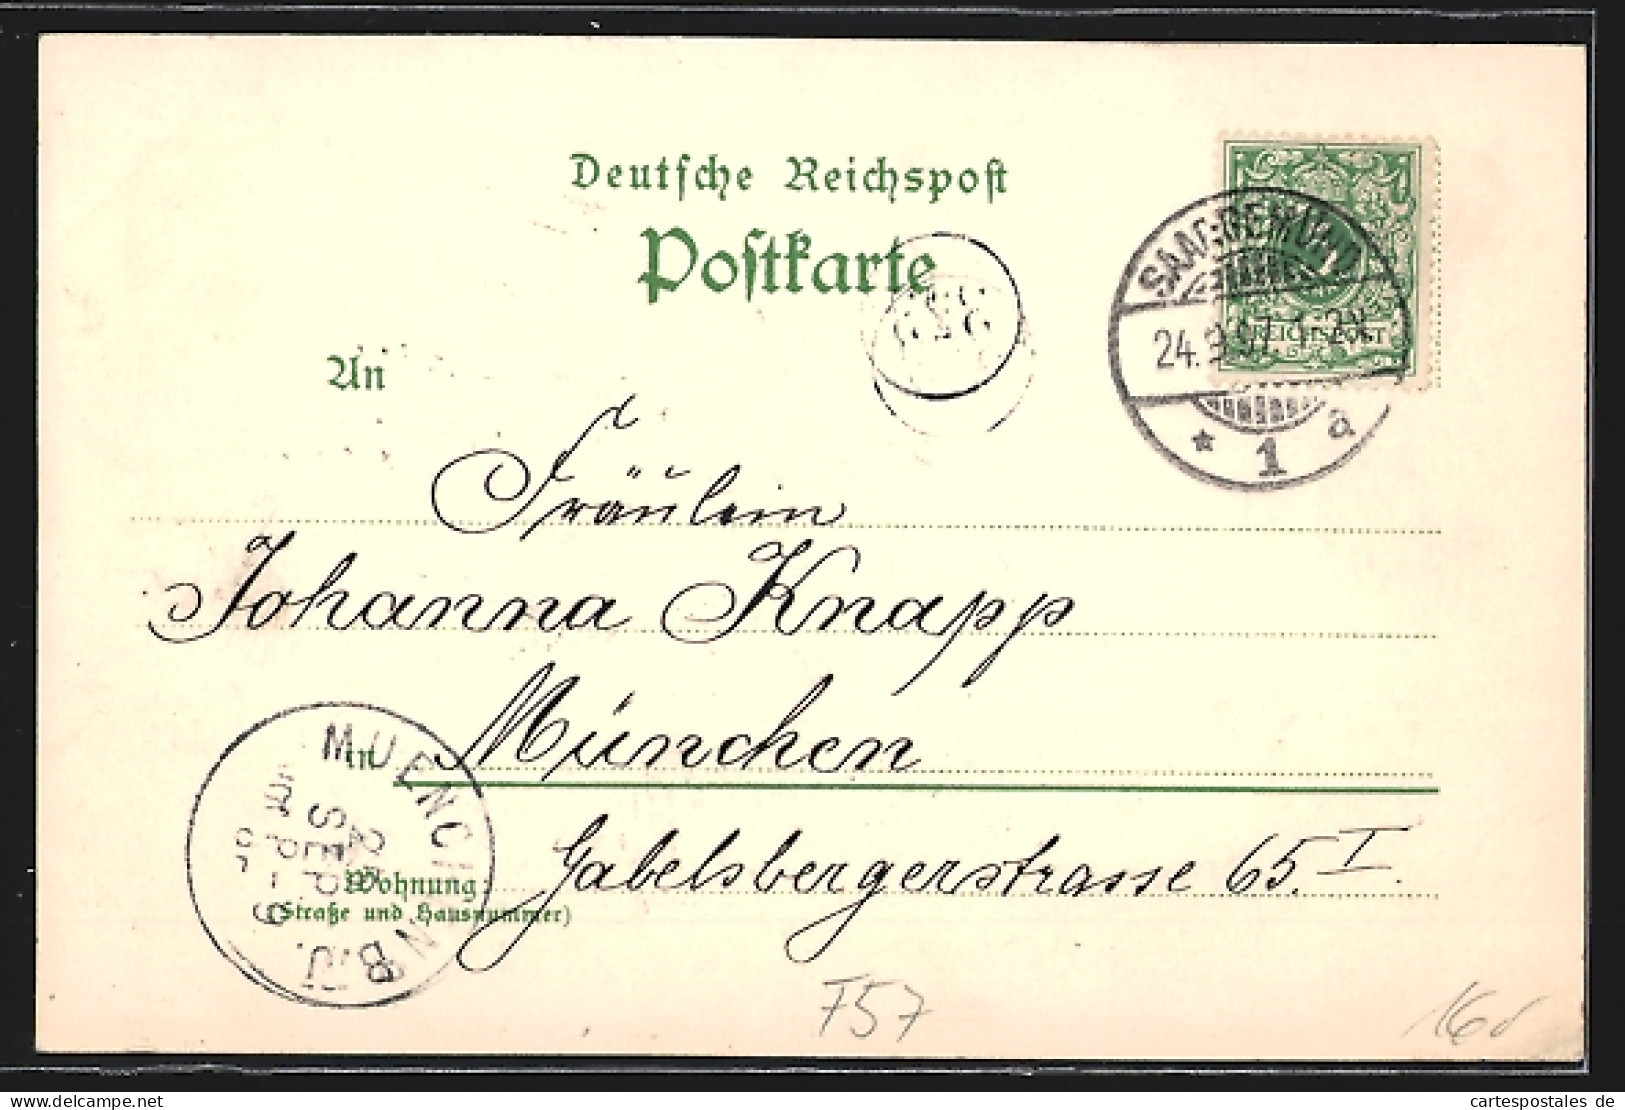 Deutsche Reichspost
Postkarte
SAARGEMÜND
24.9.97. 1-2N.
* 1 a
REICHSPOST
An
Fräulein
Johanna Knapp
in München
MUENCHEN
SEP
B.J.
Wohnung: Gabelsbergerstrasse 65. I.
(Straße und Hausnummer)
F57
cartespostales.de